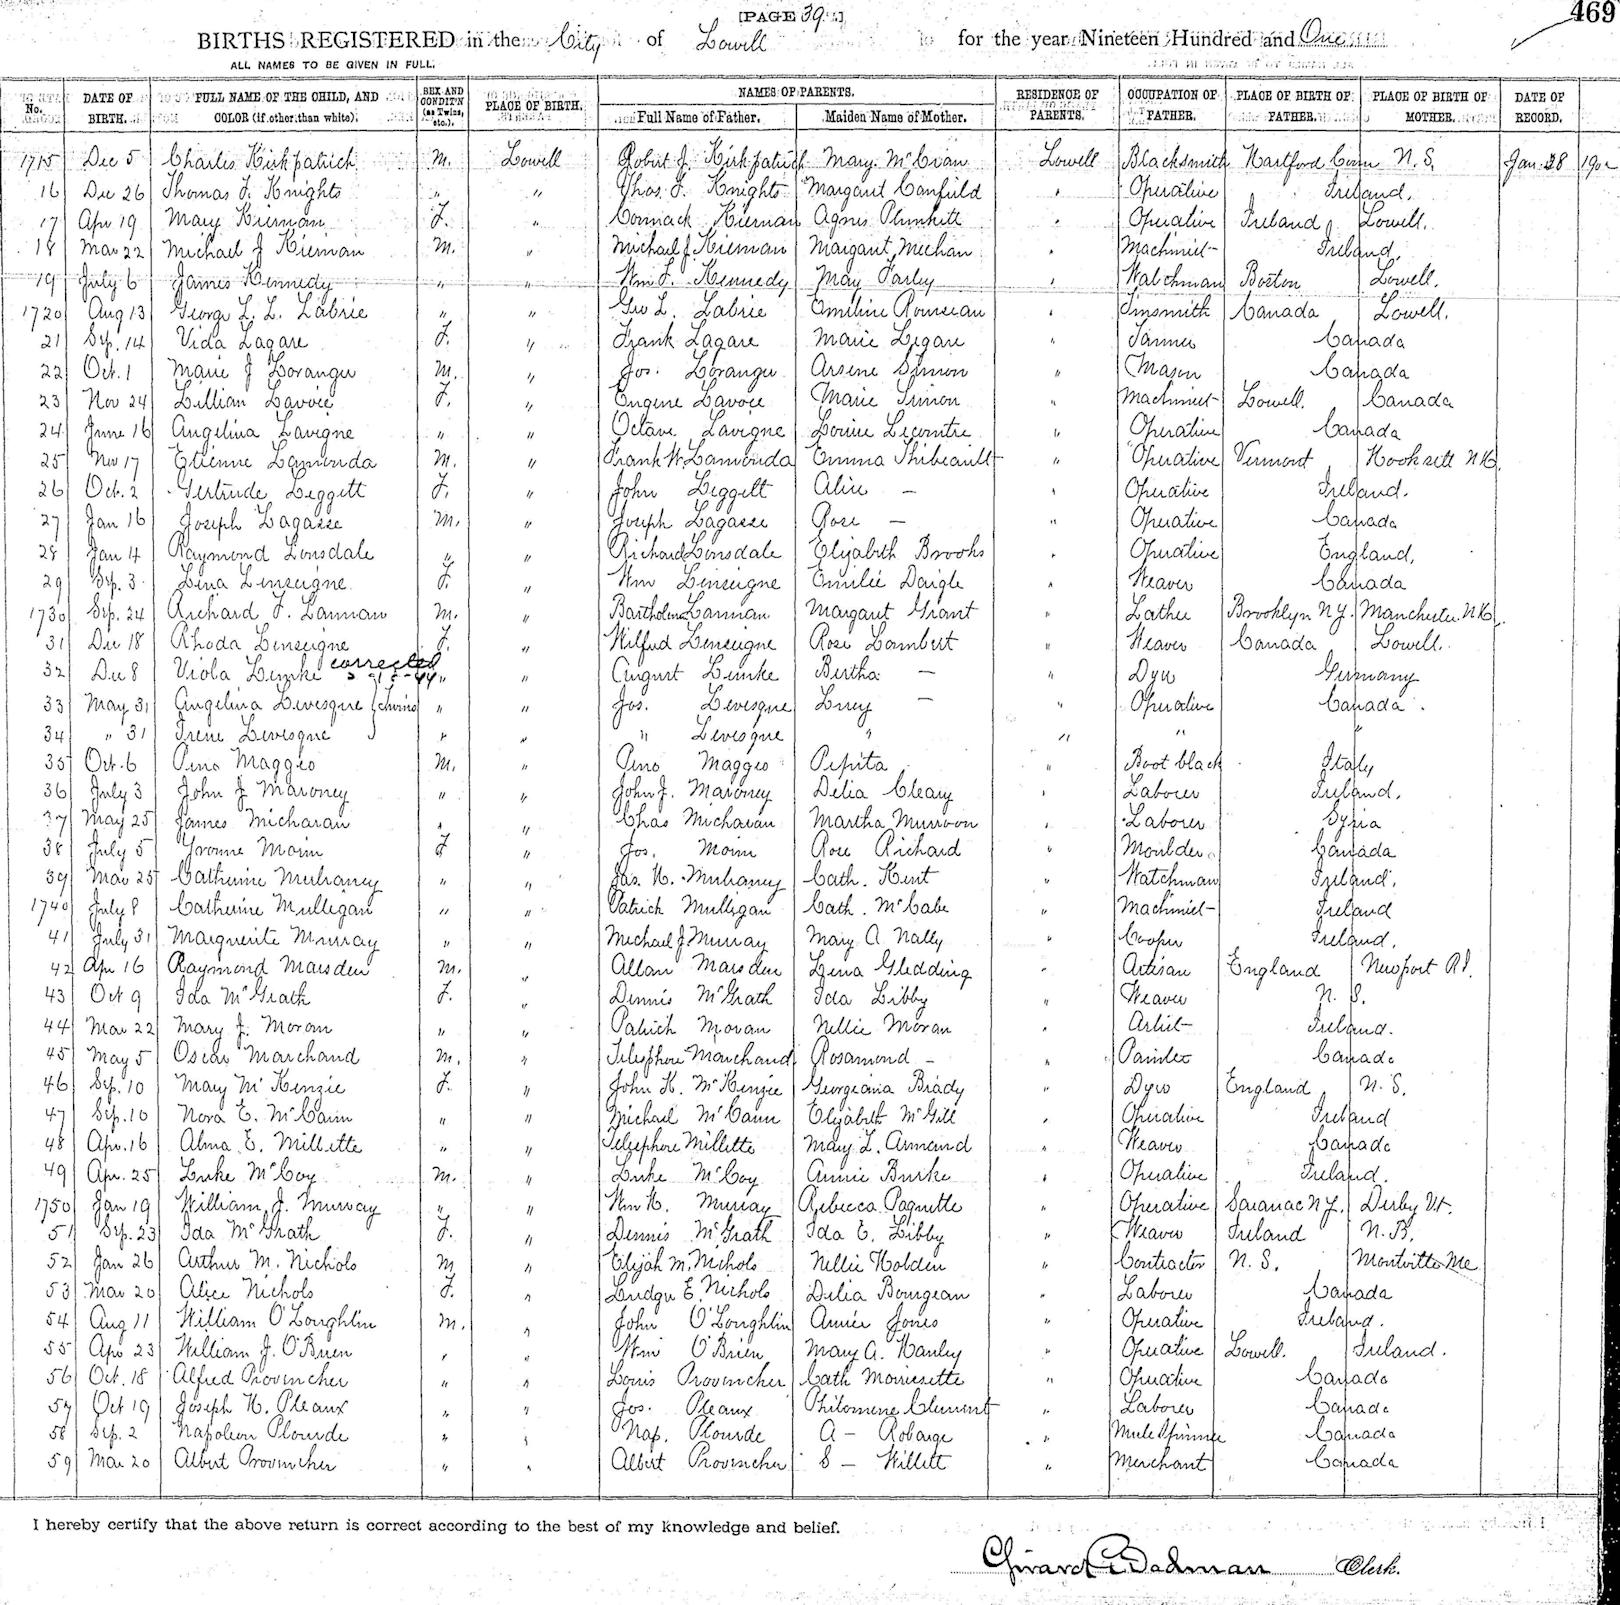 [PAGE 39.] 469
BIRTHS REGISTERED in the City of Lowell for the year Nineteen Hundred and One
ALL NAMES TO BE GIVEN IN FULL.
No. DATE OF BIRTH. FULL NAME OF THE CHILD, AND COLOR (if other than white). SEX AND CONDIT'N (as Twins, etc.). PLACE OF BIRTH. NAMES OF PARENTS. Full Name of Father. Maiden Name of Mother. RESIDENCE OF PARENTS. OCCUPATION OF FATHER. PLACE OF BIRTH OF FATHER. PLACE OF BIRTH OF MOTHER. DATE OF RECORD.
1715 Dec 5 Charles Kirkpatrick M. Lowell Robert J. Kirkpatrick Mary McCran Lowell Blacksmith Hartford Conn N. S. Jan 28 1902
16 Dec 26 Thomas F. Knights " " Thos. F. Knights Margaret Canfield " Operative Ireland.
17 Apr 19 Mary Kiernan F. " Cormack Kiernan Agnes Plunkett " Operative Ireland Lowell.
18 Mar 22 Michael J Kiernan M. " Michael J. Kiernan Margaret Meehan " Machinist Ireland.
19 July 6 James Kennedy " " Wm F. Kennedy May Farley " Watchman Boston Lowell.
1720 Aug 13 George L. L. Labrie " " Geo L. Labrie Emiline Rousseau " Tinsmith Canada Lowell.
21 Sep. 14 Vida Lagare F. " Frank Lagare Marie Legare " Tanner Canada
22 Oct. 1 Marie J Loranger M. " Jos. Loranger Arsene Simon " Mason Canada
23 Nov 24 Lillian Lavoie F. " Eugene Lavoie Marie Simon " Machinist Lowell. Canada
24 June 16 Angelina Lavigne " " Octave Lavigne Louise Lecomtre " Operative Canada
25 Nov 17 Etienne Lamonda M. " Frank W. Lamonda Emma Thibeault " Operative Vermont Hooksett N.H.
26 Oct. 2 Gertrude Leggett F. " John Leggett Alice — " Operative Ireland.
27 Jan 16 Joseph Lagasse M. " Joseph Lagasse Rose — " Operative Canada
28 Jan 4 Raymond Lonsdale " " Richard Lonsdale Elizabeth Brooks " Operative England.
29 Sep. 3 Lena Lenseigne F. " Wm Lenseigne Emilie Daigle " Weaver Canada
1730 Sep. 24 Richard F. Lannan M. " Bartholmew Lannan Margaret Grant " Lather Brooklyn N.Y. Manchester N.H.
31 Dec 18 Rhoda Lenseigne F. " Wilfred Lenseigne Rose Lambert " Weaver Canada Lowell.
32 Dec 8 Viola Lemke corrected " " August Lemke Bertha — " Dyer Germany
33 May 31 Angelina Levesque } twins " " Jos. Levesque Lucy — " Operative Canada
34 " 31 Irene Levesque } " " " Levesque " " " "
35 Oct. 6 Pino Maggio M. " Pino Maggio Pepita " Boot black Italy
36 July 3 John J Maroney " " John J. Maroney Delia Cleary " Laborer Ireland.
37 May 25 James Micharan " " Chas Micharan Martha Murroon " Laborer Syria
38 July 5 Yvonne Morin F " Jos. Morin Rose Richard " Moulder Canada
39 Mar 25 Catherine Mulvaney " " Jas. H. Mulvaney Cath. Kent " Watchman Ireland.
1740 July 8 Catherine Mulligan " " Patrick Mulligan Cath. McCabe " Machinist Ireland
41 July 31 Marguerite Murray " " Michael J Murray Mary A Nally " Cooper Ireland.
42 Apr 16 Raymond Marsden M. " Allan Marsden Lena Gledding " Artisan England Newport R.I.
43 Oct 9 Ida McGrath F. " Dennis McGrath Ida Libby " Weaver N. S.
44 Mar 22 Mary J. Moran " " Patrick Moran Nellie Moran " Artist Ireland.
45 May 5 Oscar Marchand M. " Telesphore Marchand Rosamond — " Painter Canada
46 Sep. 10 Mary McKenzie F. " John K. McKenzie Georgeana Brady " Dyer England N. S.
47 Sep. 10 Nora E. McCann " " Michael McCann Elizabeth McGill " Operative Ireland
48 Apr. 16 Alma E. Millette " " Telesphore Millette Mary L. Armand " Weaver Canada
49 Apr. 25 Luke McCoy M. " Luke McCoy Annie Burke " Operative Ireland.
1750 Jan 19 William J. Murray " " Wm H. Murray Rebecca Paquette " Operative Saranac N.Y. Derby Vt.
51 Sep. 23 Ida McGrath F. " Dennis McGrath Ida E. Libby " Weaver Ireland N. B.
52 Jan 26 Arthur M. Nichols M. " Elijah M. Nichols Nellie Holden " Contractor N. S. Montville Me
53 Mar 20 Alice Nichols F. " Ludger E. Nichols Delia Bourgean " Laborer Canada
54 Aug 11 William O'Loughlin M. " John O'Loughlin Annie Jones " Operative Ireland.
55 Apr 23 William J. O'Brien " " Wm O'Brien Mary A. Hanley " Operative Lowell. Ireland.
56 Oct. 18 Alfred Provencher " " Louis Provencher Cath Morrisette " Operative Canada
57 Oct 19 Joseph H. Pleaux " " Jos. Pleaux Philomene Clement " Laborer Canada
58 Sep. 2 Napoleon Plourde " " Nap. Plourde A — Robarge " Mule Spinner Canada
59 Mar 20 Albert Provencher " " Albert Provencher S — Willett " Merchant Canada
I hereby certify that the above return is correct according to the best of my knowledge and belief.
Girard P. Dadman Clerk.